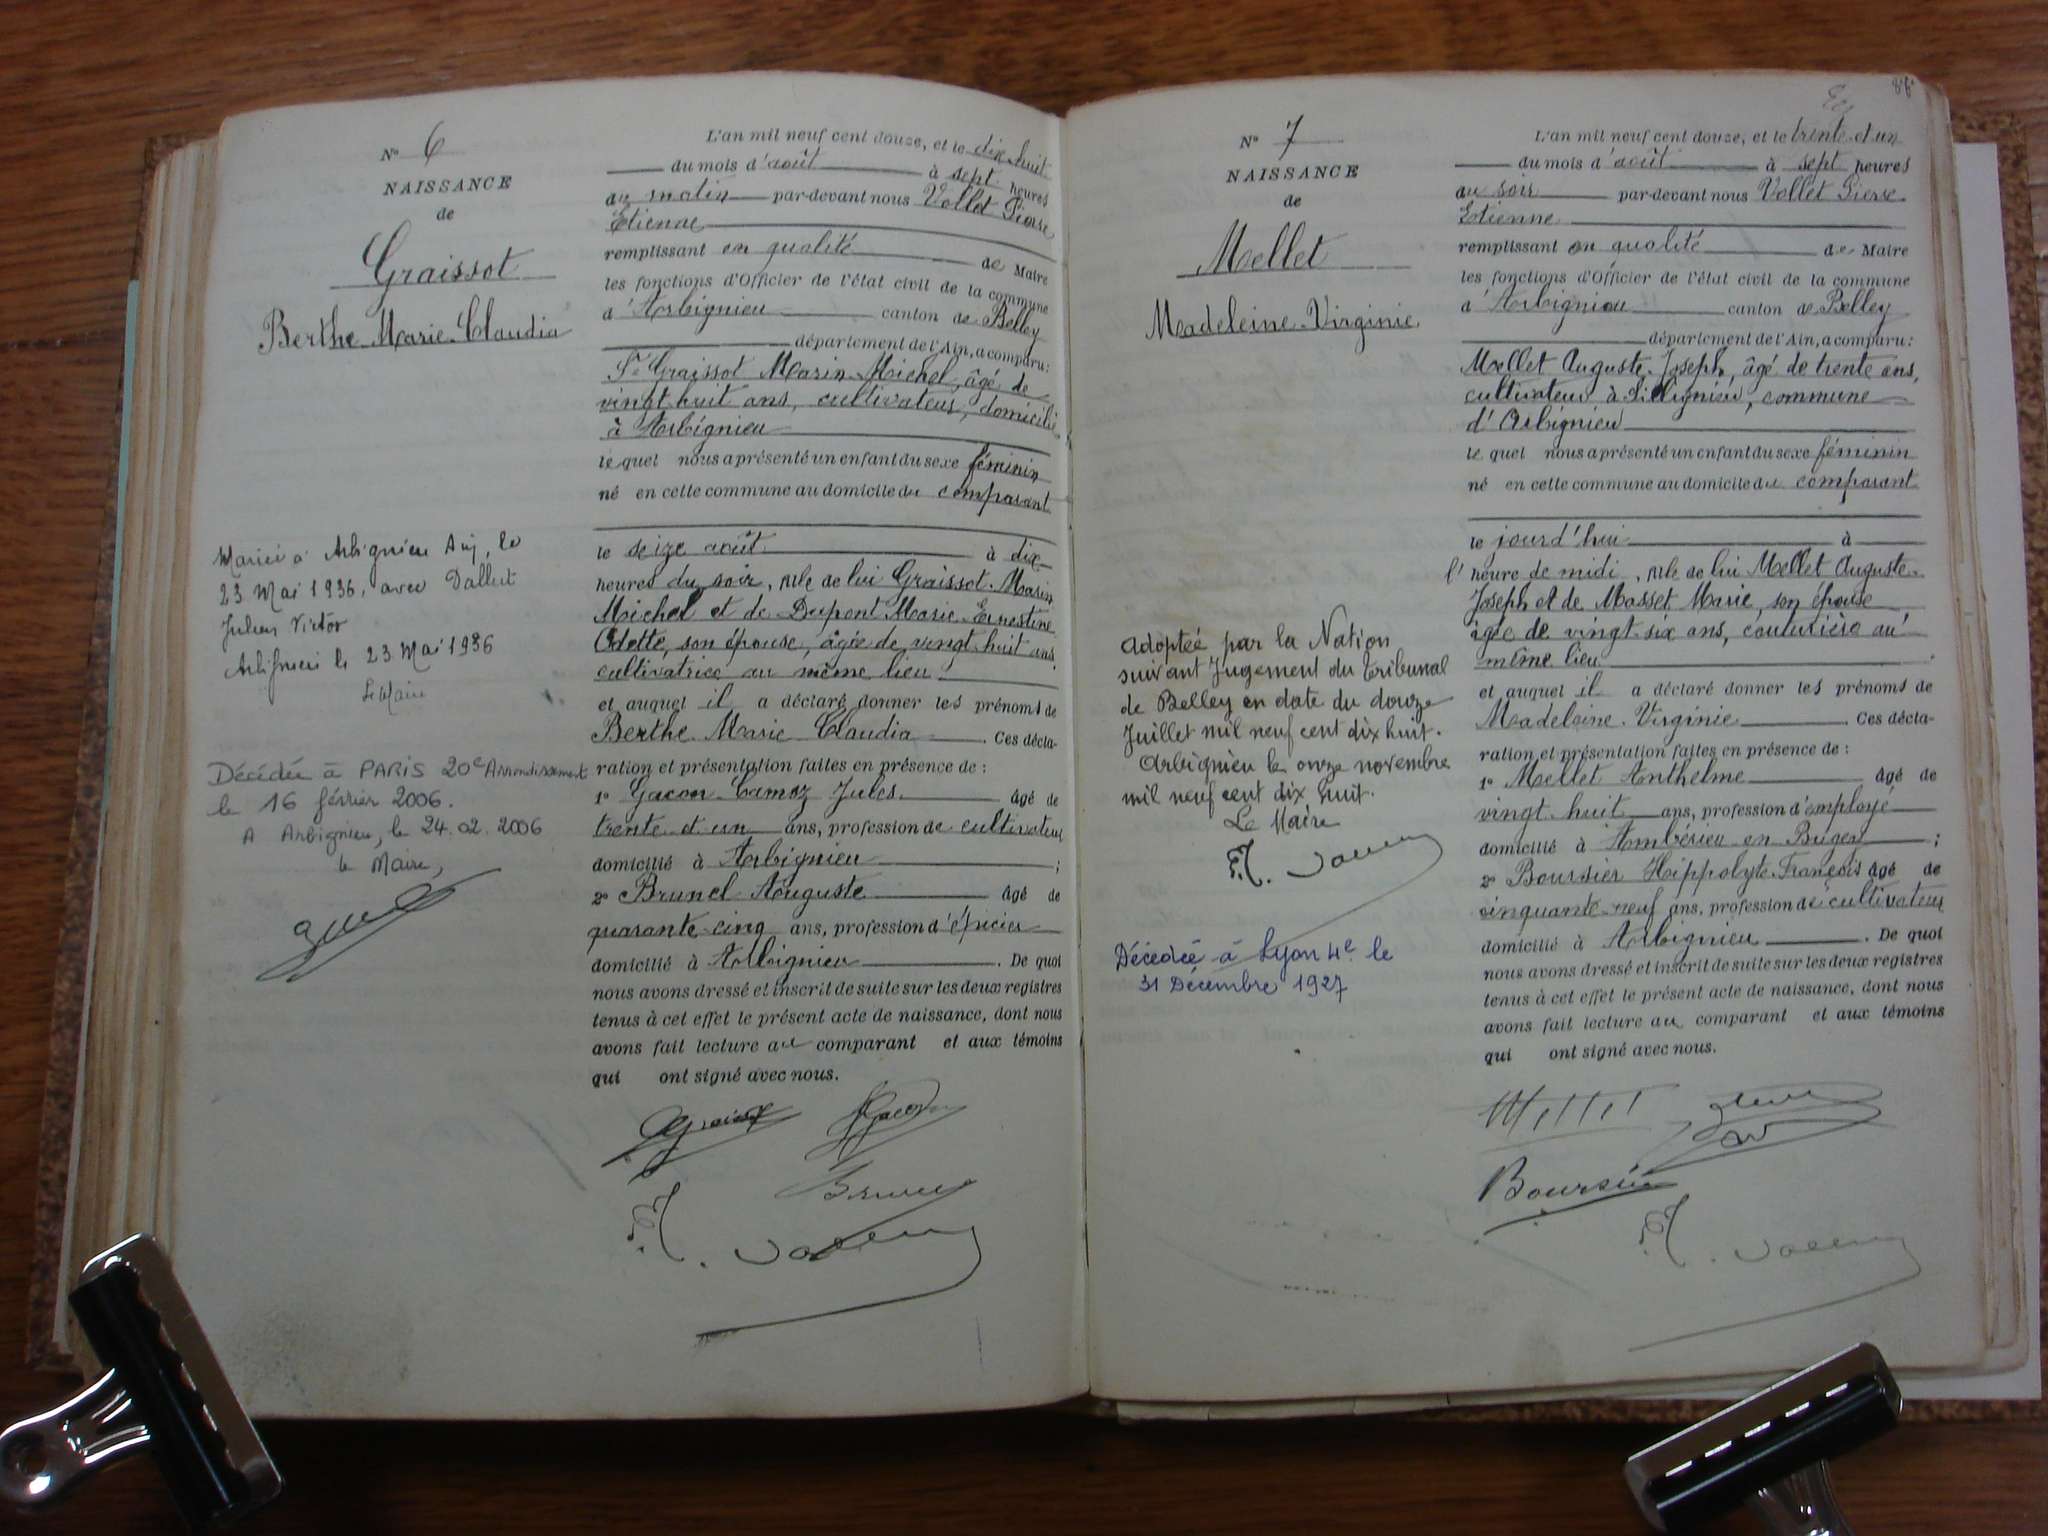 N° 6
NAISSANCE
de
Graissot
Berthe Marie-Claudia
Mariée à Arbignieu Ain, le
23 Mai 1936, avec
Julien Victor
Arbignieu le 23 Mai 1936
Le Maire
Décédée à PARIS 20e Arrondissement
le 16 février 2006.
A Arbignieu, le 24.02.2006
le Maire,
L'an mil neuf cent douze, et le dix huit
du mois d'août à sept heures
du matin par-devant nous Vollet Pierre
Etienne
remplissant en qualité de Maire
les fonctions d'Officier de l'état civil de la commune
d'Arbignieu canton de Belley
département de l'Ain, a comparu:
Sr Graissot Marin-Michel, âgé de
vingt huit ans, cultivateur, domicilié
à Arbignieu
lequel nous a présenté un enfant du sexe féminin
né en cette commune au domicile du comparant
le seize août à dix
heures du soir, née de lui Graissot Marin
Michel et de Dupont Marie-Ernestine
Odette, son épouse, âgée de vingt-huit ans
cultivatrice au même lieu
et auquel il a déclaré donner les prénoms de
Berthe Marie Claudia. Ces décla-
ration et présentation faites en présence de :
1° Gacon-Camoz Jules âgé de
trente et un ans, profession de cultivateur
domicilié à Arbignieu ;
2° Brunel Auguste âgé de
quarante-cinq ans, profession d'épicier
domicilié à Arbignieu. De quoi
nous avons dressé et inscrit de suite sur les deux registres
tenus à cet effet le présent acte de naissance, dont nous
avons fait lecture au comparant et aux témoins
qui ont signé avec nous.
86
N° 7
NAISSANCE
de
Mellet
Madeleine-Virginie
Adoptée par la Nation
suivant Jugement du Tribunal
de Belley en date du douze
Juillet mil neuf cent dix huit.
Arbignieu le onze novembre
mil neuf cent dix huit.
Le Maire
Décédée à Lyon 4e le
31 Décembre 1927
L'an mil neuf cent douze, et le trente et un
du mois d'août à sept heures
du soir par-devant nous Vollet Pierre
Etienne
remplissant en qualité de Maire
les fonctions d'Officier de l'état civil de la commune
d'Arbignieu canton de Belley
département de l'Ain, a comparu:
Mellet Auguste-Joseph, âgé de trente ans,
cultivateur à Sillignieu, commune
d'Arbignieu
lequel nous a présenté un enfant du sexe féminin
né en cette commune au domicile du comparant
le jourd'hui à
l'heure de midi, née de lui Mellet Auguste-
Joseph et de Masset Marie, son épouse
âgée de vingt-six ans, couturière au
même lieu
et auquel il a déclaré donner les prénoms de
Madeleine-Virginie. Ces décla-
ration et présentation faites en présence de :
1° Mellet Anthelme âgé de
vingt huit ans, profession d'employé
domicilié à Ambérieu en Bugey ;
2° Boursier Hippolyte-François âgé de
cinquante-neuf ans, profession de cultivateur
domicilié à Arbignieu. De quoi
nous avons dressé et inscrit de suite sur les deux registres
tenus à cet effet le présent acte de naissance, dont nous
avons fait lecture au comparant et aux témoins
qui ont signé avec nous.
Mellet
Boursier